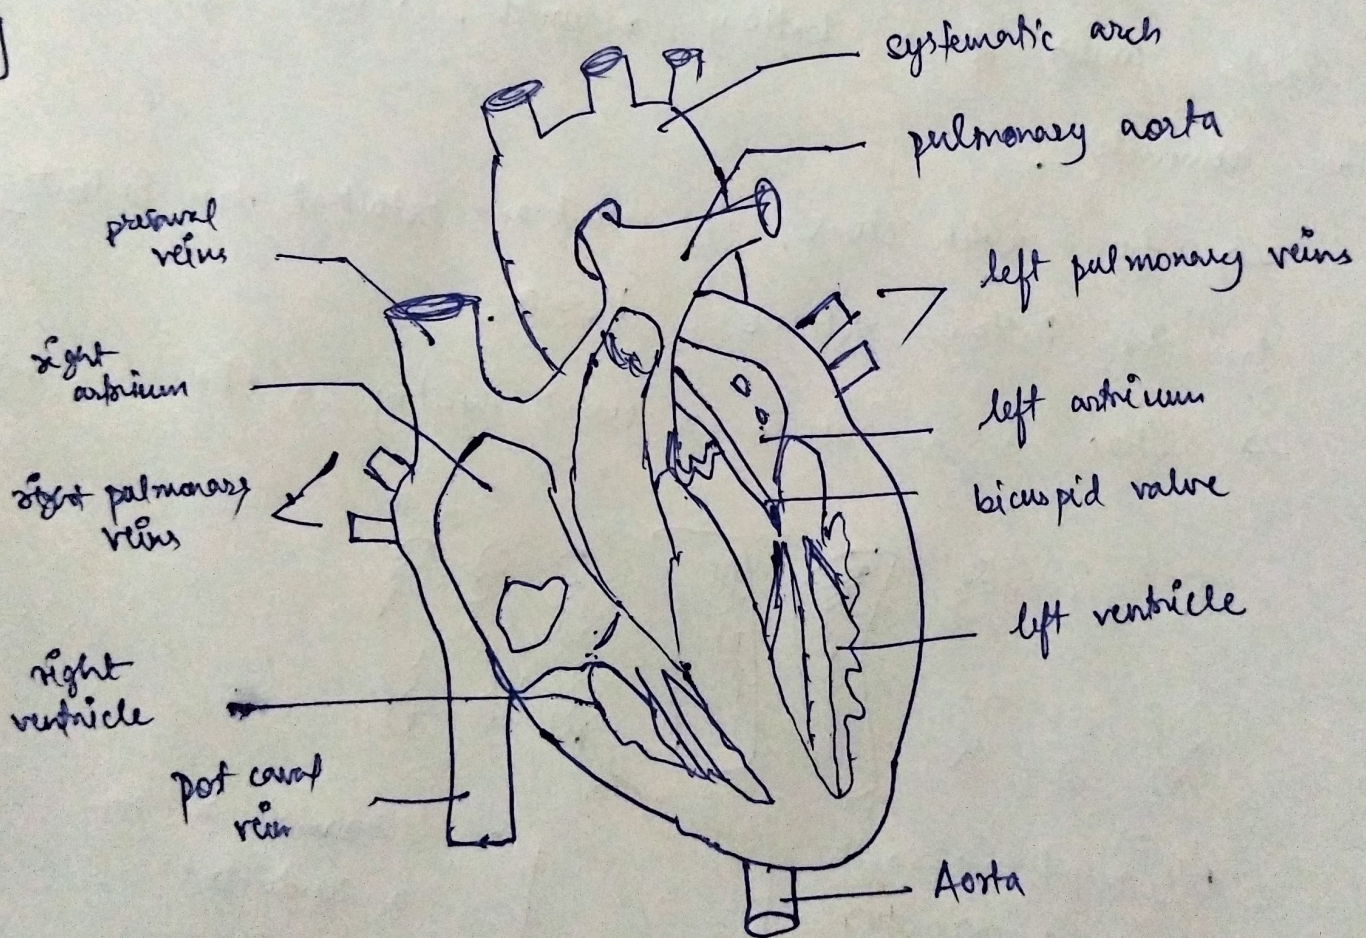 systematic arch
pulmonary aorta
left pulmonary veins
left astrium
bicuspid valve
left ventricle
Aorta
veins
right
right pulmonary
veins
right
ventricle
post caval
vein